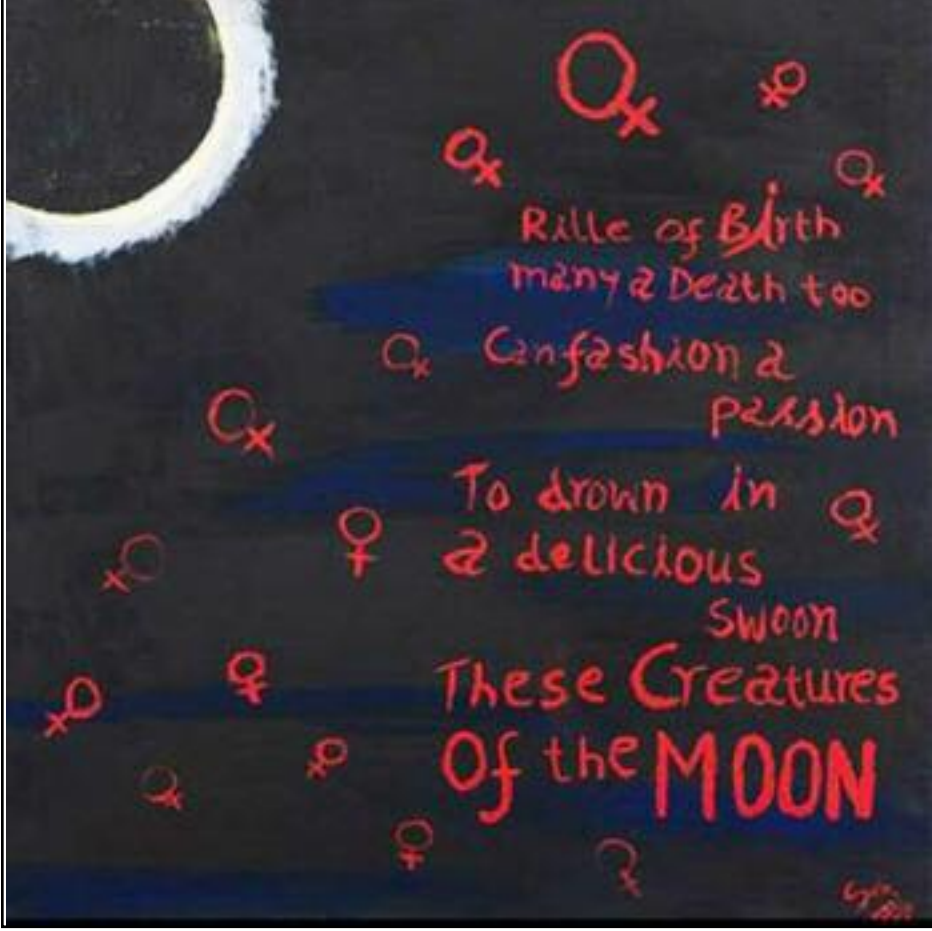 Rille of Birth
many a Death too
Can fashion a
passion
To drown in
a delicious
swoon
These Creatures
Of the MOON